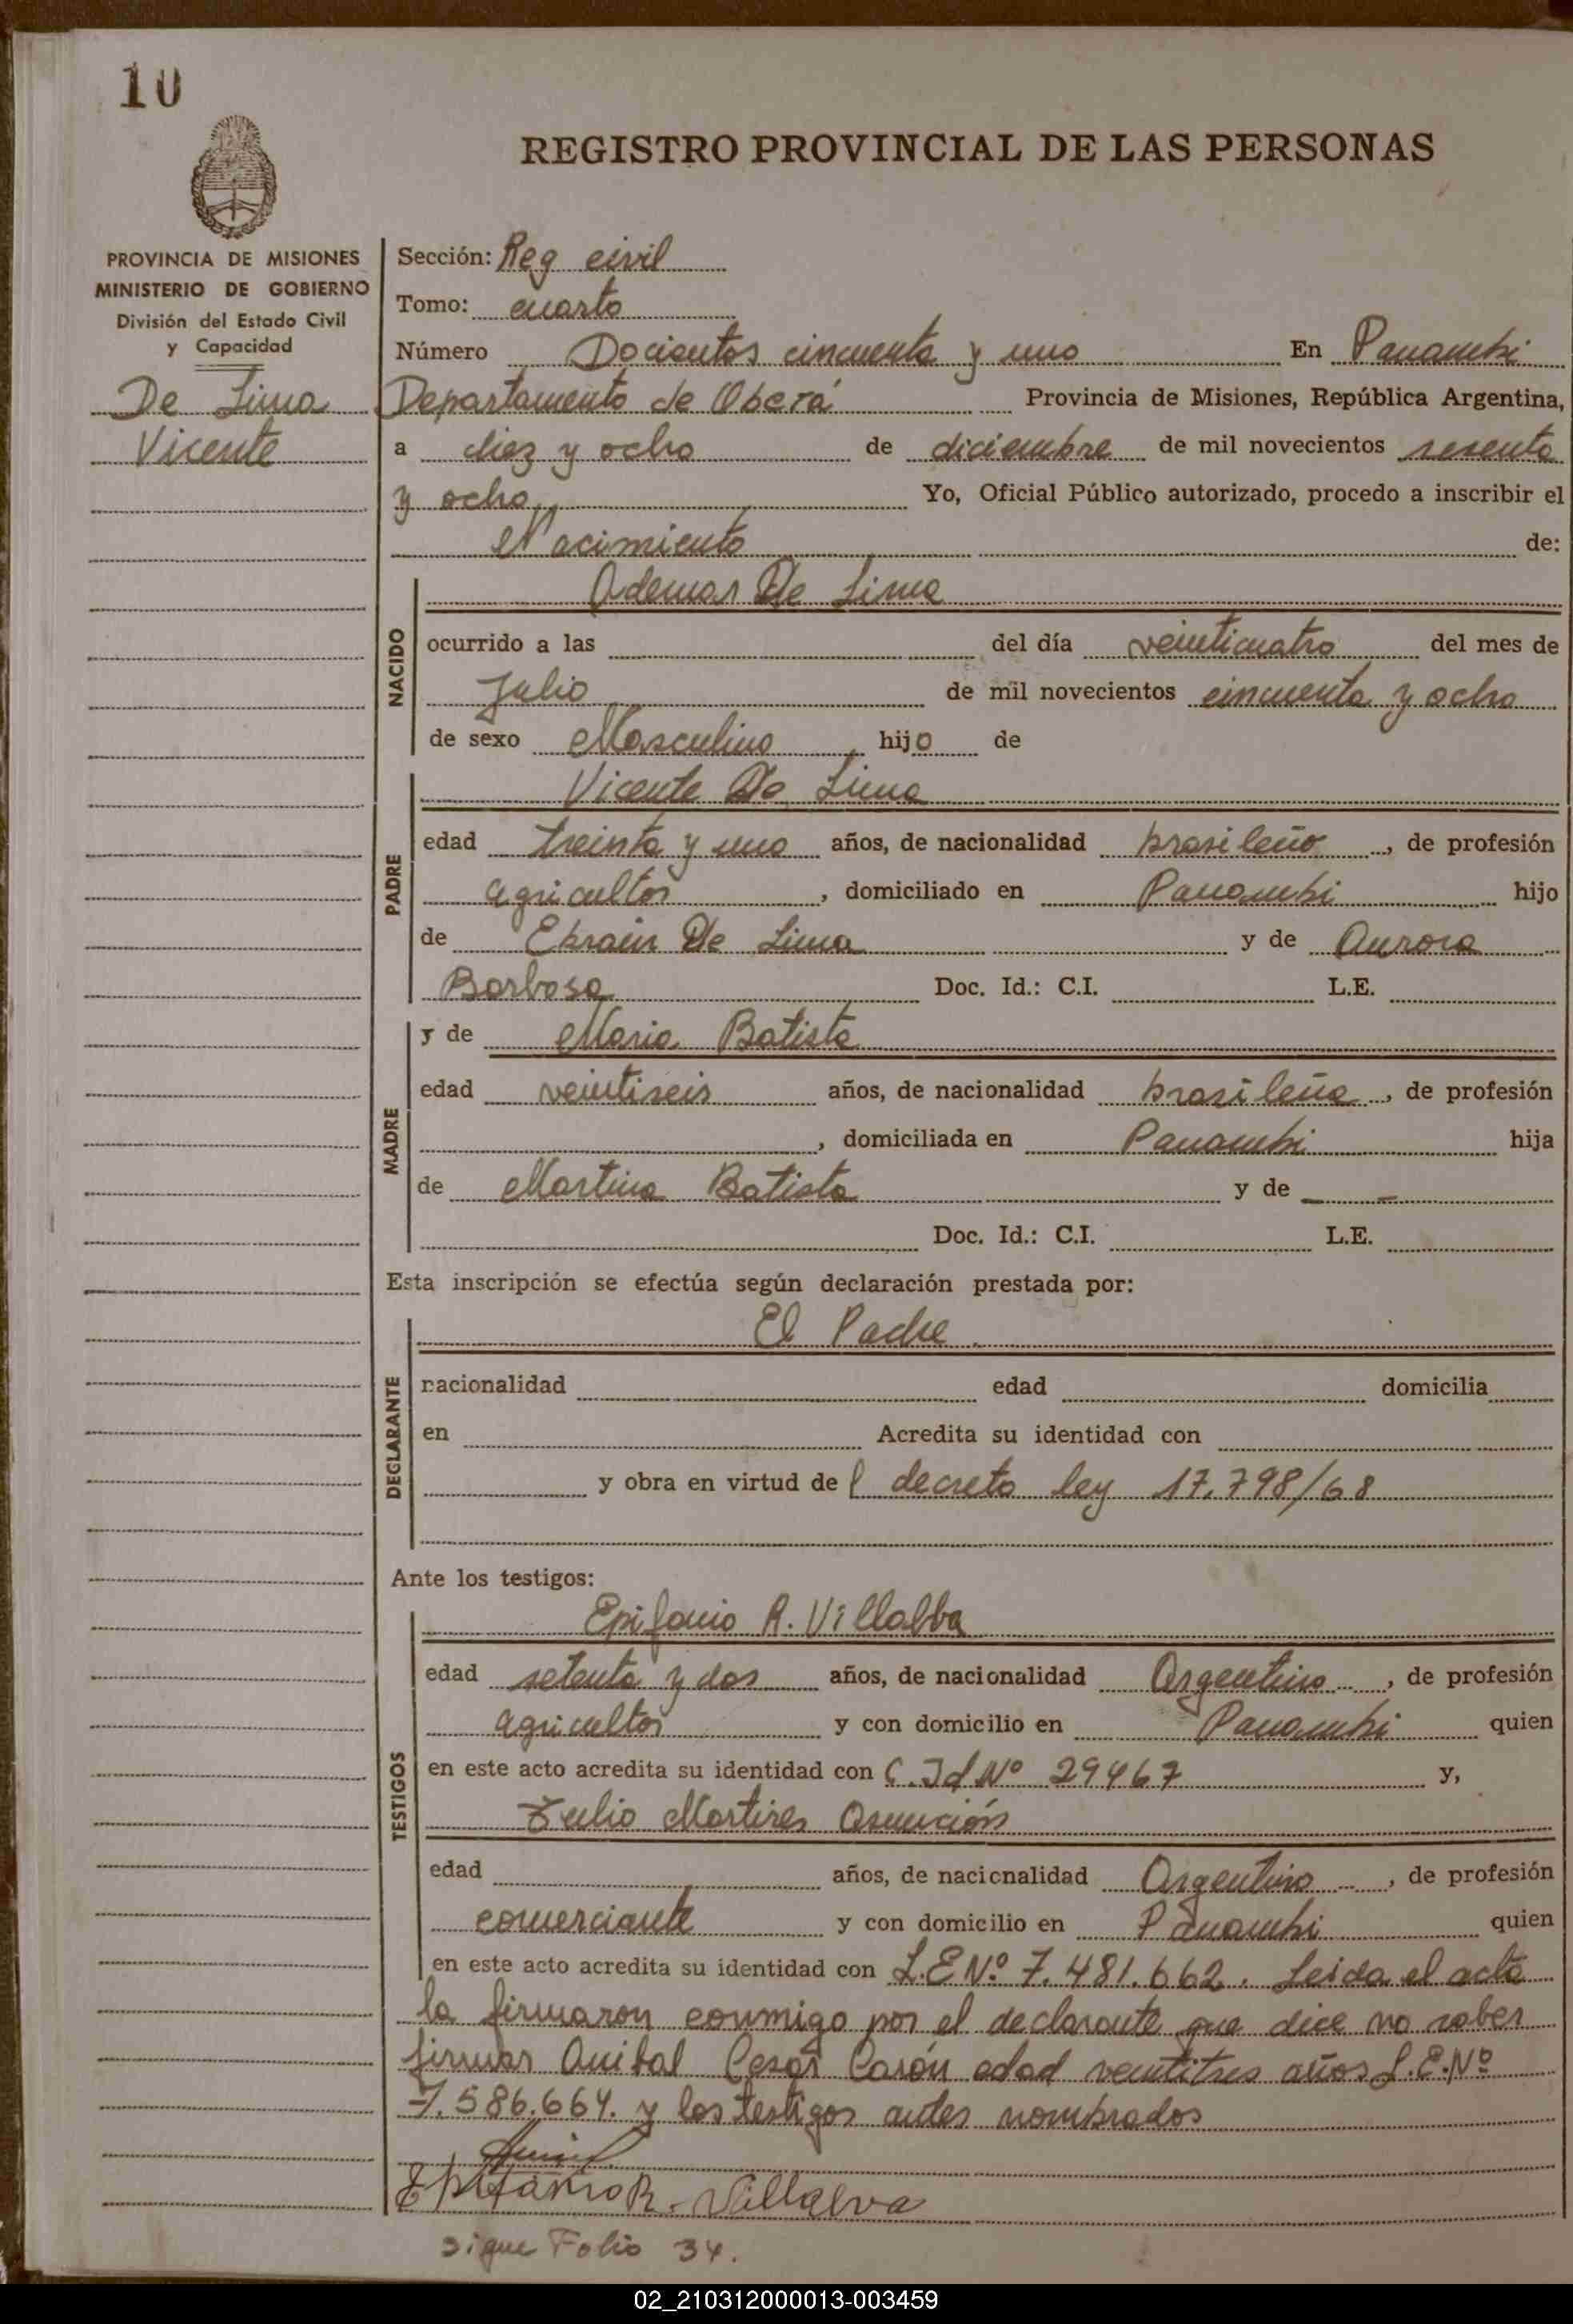 10
REGISTRO PROVINCIAL DE LAS PERSONAS
PROVINCIA DE MISIONES
MINISTERIO DE GOBIERNO
División del Estado Civil
y Capacidad
De Lima
Vicente
Sección: Reg civil
Tomo: cuarto
Número Docientos cincuenta y uno En Panambi
Departamento de Oberá Provincia de Misiones, República Argentina,
a diez y ocho de diciembre de mil novecientos sesenta
y ocho Yo, Oficial Público autorizado, procedo a inscribir el
Nacimiento de:
NACIDO
Ademar De Lima
ocurrido a las del día veinticuatro del mes de
Julio de mil novecientos cincuenta y ocho
de sexo Masculino hijo de
PADRE
Vicente De Lima
edad treinta y uno años, de nacionalidad brasileño, de profesión
agricultor, domiciliado en Panambi hijo
de Efrain De Lima y de Aurora
Barbosa Doc. Id.: C.I. L.E.
MADRE
y de Maria Batista
edad veintiseis años, de nacionalidad brasileña, de profesión
, domiciliada en Panambi hija
de Martina Batista y de — —
Doc. Id.: C.I. L.E.
Esta inscripción se efectúa según declaración prestada por:
DECLARANTE
El Padre.
nacionalidad edad domicilia
en Acredita su identidad con
y obra en virtud del decreto ley 17.798/68
Ante los testigos:
TESTIGOS
Epifanio R. Villalba
edad setenta y dos años, de nacionalidad Argentino, de profesión
agricultor y con domicilio en Panambi quien
en este acto acredita su identidad con C. Id Nº 29467 y,
Julio Martires Asunción
edad años, de nacionalidad Argentino, de profesión
comerciante y con domicilio en Panambi quien
en este acto acredita su identidad con L.E Nº 7.481.662. Leida el acta
la firmaron conmigo por el declarante que dice no saber
firmar Anibal Cesar Carón edad veintitres años L.E.Nº
7.586.664. y los testigos antes nombrados
Epifanio R. Villalva
sigue Folio 34.
02_210312000013-003459